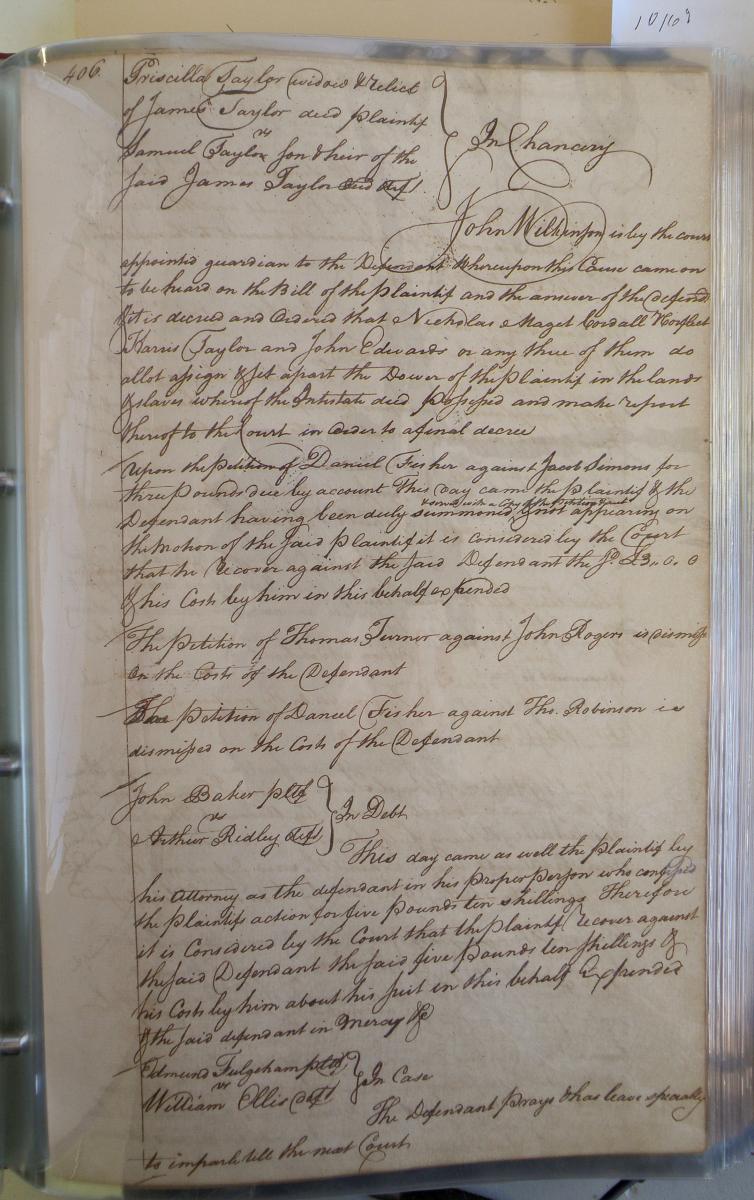 10/69
406.
Priscilla Taylor widow & relict
of James Taylor decd plaintif
vs
Samuel Taylor son & heir of the
said James Taylor decd deft.
In Chancery
John Wilkinson is by the court
appointed guardian to the Defendant Whereupon this Cause came on
to be heard on the Bill of the plaintif and the answer of the defend
& it is decreed and Ordered that Nicholas Maget Cordall Norfleet
Harris Taylor and John Edwards or any three of them do
allot assign & set apart the Dower of the plaintif in the lands
& slaves whereof the Intestate died possessed and make report
thereof to the Court in order to a final decree
Upon the petition of Daniel Fisher against Jacob Simons for
three pounds due by account This day came the plaintif & the
served with a Copy of the petition & acct
Defendant having been duly summoned & not appearing on
the motion of the said plaintif it is considered by the Court
that he recover against the said Defendant the sd. £3.. 0. 0
& his Costs by him in this behalf expended
The petition of Thomas Turner against John Rogers is dismiss
on the Costs of the Defendant
The petition of Daniel Fisher against Tho. Robinson is
dismissed on the Costs of the Defendant
John Baker pltf
vs
Arthur Ridley deft
In Debt
This day came as well the plaintif by
his Attorney as the defendant in his proper person who confessed
the plaintifs action for five pounds ten shillings Therefore
it is Considered by the Court that the plaintif recover against
the said Defendant the said five pounds ten shillings &
his Costs by him about his suit in this behalf Expended
& the said defendant in mercy &c
Edmund Fulgeham pltf
vs
William Ellis deft
In Case
The Defendant prays & has leave specially
to imparle till the next Court